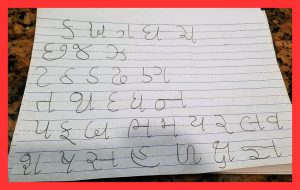 ક ખ ગ ઘ ચ
છ જ ઝ
ટ ઠ ડ ઢ ણ
ત થ દ ધ ન
પ ફ બ ભ મ ય ર લ વ
શ ષ સ હ ળ ક્ષ જ્ઞ